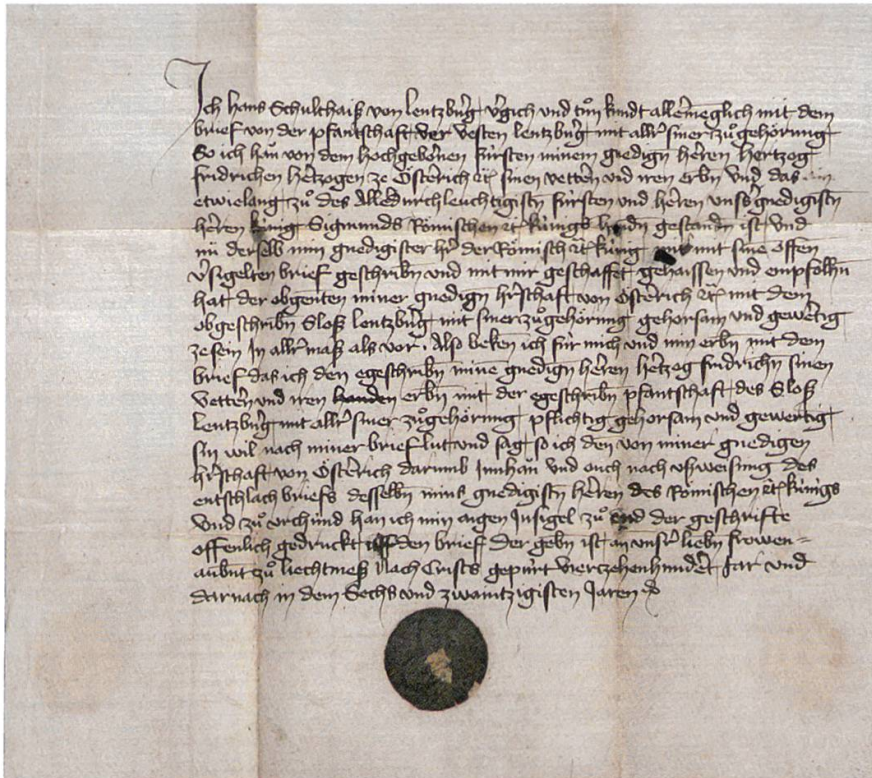 Ich hans Schulthaiß von lentzburg vergich und tůn kundt allermeglich mit dem
brief von der pfantschaft der vesten lentzburg mit aller siner zůgehörung
So ich han von dem hochgebornen fürsten minem gnedign herren hertzog
fridrichen hertzogen ze Österich etc sinen vettern und iren erbn und das
etwielang zů des Alledurchleuchtigistn fürsten und herren unsers gnedigistn
herren künig Sigmunds Römischen etc künigs handn gestandn ist und
nu derselb min gnedigister her der Römisch etc künig mit sine offen
versigelten brief geschribn und mit mir geschaffet gehaissen und empfolhn
hat der obgenten miner gnedign herschaft von Österich etc mit dem
obgeschribn Sloß lentzburg mit siner zůgehörung gehorsam und gewertig
ze sein In aller maß als vor. Also beken ich für mich und min erbn mit dem
brief das ich den egeschribn mine gnedign herren hertzog fridrichn sinen
vettern und iren erbn mit der egeschribn pfantschaft des Sloß
lentzburg mit aller siner zůgehörung pflichtig gehorsam und gewertig
sin wil nach miner brief lut und sag so ich den von miner gnedigen
herschaft von Österich darumb Innhan und ouch nach ußweisung des
entschlachbriefs desselbn mins gnedigistn herren des Römischen etc künigs
Und zů vrchund han ich min aigen Insigel zů end der geschrifte
offenlich gedruckt uff den brief der gebn ist an unser liebn frowen=
aubnt zů liechtmeß Nach Crists gepurt vierczehenhundert Jar und
darnach in dem Sechs und zwaintzigisten Jaren